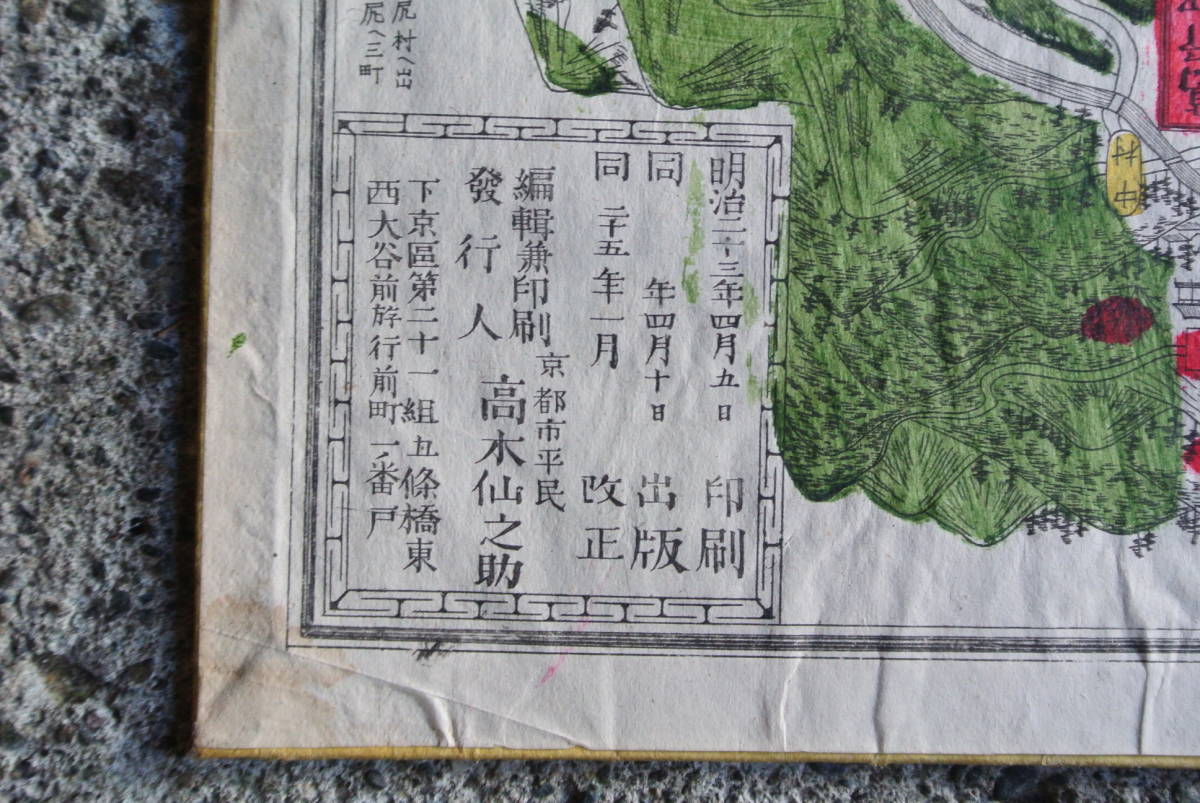 明治二十三年四月九日 印刷
同 年四月十日 出版
同 二十五年一月 改正
編輯兼印刷
發行人
京都市平民
高木仙之助
下京區第二十一組五條橋東
西大谷前筋行前町一番戸
尻村ヘ出
尻ヘ三町
村中